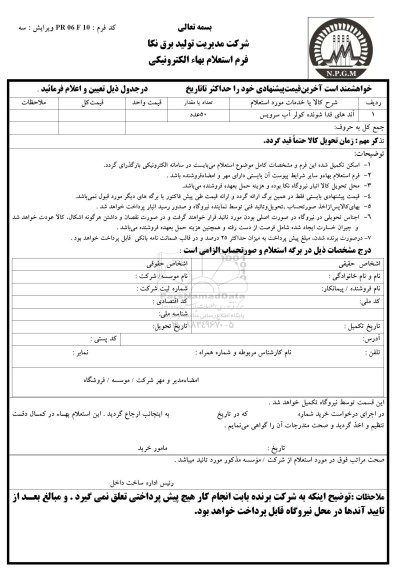 بسمه تعالی
کد فرم : PR 06 F 10 ویرایش : سه
شرکت مدیریت تولید برق نکا
فرم استعلام بهاء الکترونیکی
N.P.G.M
خواهشمند است آخرین قیمت پیشنهادی خود را حداکثر تا تاریخ درجدول ذیل تعیین و اعلام فرمائید .
ردیف شرح کالا یا خدمات مورد استعلام تعداد یا مقدار قیمت واحد قیمت کل ملاحظات
۱ آند های فدا شونده کولر آب سرویس ۵۰عدد
جمع کل به حروف:
تذکر مهم : زمان تحویل کالا حتماً قید گردد.
توضیحات:
۱- اسکن تکمیل شده این فرم و مشخصات کامل موضوع استعلام می‌بایست در سامانه الکترونیکی بارگذاری گردد.
۲- فرم استعلام بهاءو سایر شرایط پیوست آن بایستی دارای مهر و امضاءفروشنده باشد .
۳- محل تحویل کالا انبار نیروگاه نکا بوده و هزینه حمل بعهده فروشنده می‌باشد.
۴- قیمت پیشنهادی بایستی فقط در همین برگ ارائه گردد و ارائه قیمت طی پیش فاکتور یا برگه های دیگر مورد قبول نمی‌باشد.
۵- بهای کالاپس‌ازاخذ صورتحساب ،تحویل‌وتائید فنی توسط نماینده نیروگاه و صدور رسید انبار پرداخت خواهد شد .
۶- اجناس تحویلی در نیروگاه در صورت اصلی بودن مورد تائید قرار خواهند گرفت و در صورت نقصان و داشتن هرگونه اشکال، کالا عودت خواهد شد
و جبران خسارت ایجاد شده شامل فرصت از دست رفته و همچنین هزینه حمل بعهده فروشنده می‌باشد .
۷- درصورت برنده شدن، مبلغ پیش پرداخت به میزان حداکثر ۲۵ درصد و در قالب ضمانت نامه بانکی قابل پرداخت خواهد بود .
درج مشخصات ذیل در برگه استعلام و صورتحساب الزامی است :
اشخاص حقیقی اشخاص حقوقی
نام و نام خانوادگی : نام موسسه/ شرکت :
نام فروشنده / پیمانکار: شماره ثبت شرکت :
کد ملی: کد اقتصادی :
شناسه ملی:
تاریخ تکمیل : تاریخ تحویل:
آدرس: کد پستی :
تلفن : نام کارشناس مربوطه و شماره همراه : نمابر :
امضاءمدیر و مهر شرکت / موسسه / فروشگاه
این قسمت توسط نیروگاه تکمیل خواهد شد .
در اجرای درخواست خرید شماره که در تاریخ به اینجانب ارجاع گردید . این استعلام بهاء در کمال دقت
تنظیم و اخذ گردید و صحت مندرجات آن را گواهی می‌نمایم .
تاریخ : مامور خرید
صحت مراتب فوق در مورد استعلام از شرکت / مؤسسه مذکور مورد تائید میباشد .
رئیس اداره ساخت داخل
ملاحظات :توضیح اینکه به شرکت برنده بابت انجام کار هیچ پیش پرداختی تعلق نمی گیرد . و مبالغ بعد از
تایید آندها در محل نیروگاه قابل پرداخت خواهد بود.